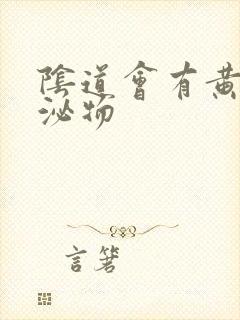 陰道會有黃
泌物
言箸